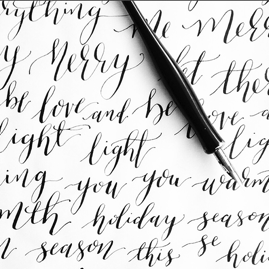 erything me Merr
y Merry let there
be love and be love a
light light
ing you you warm
mth holiday season
n season this se holi